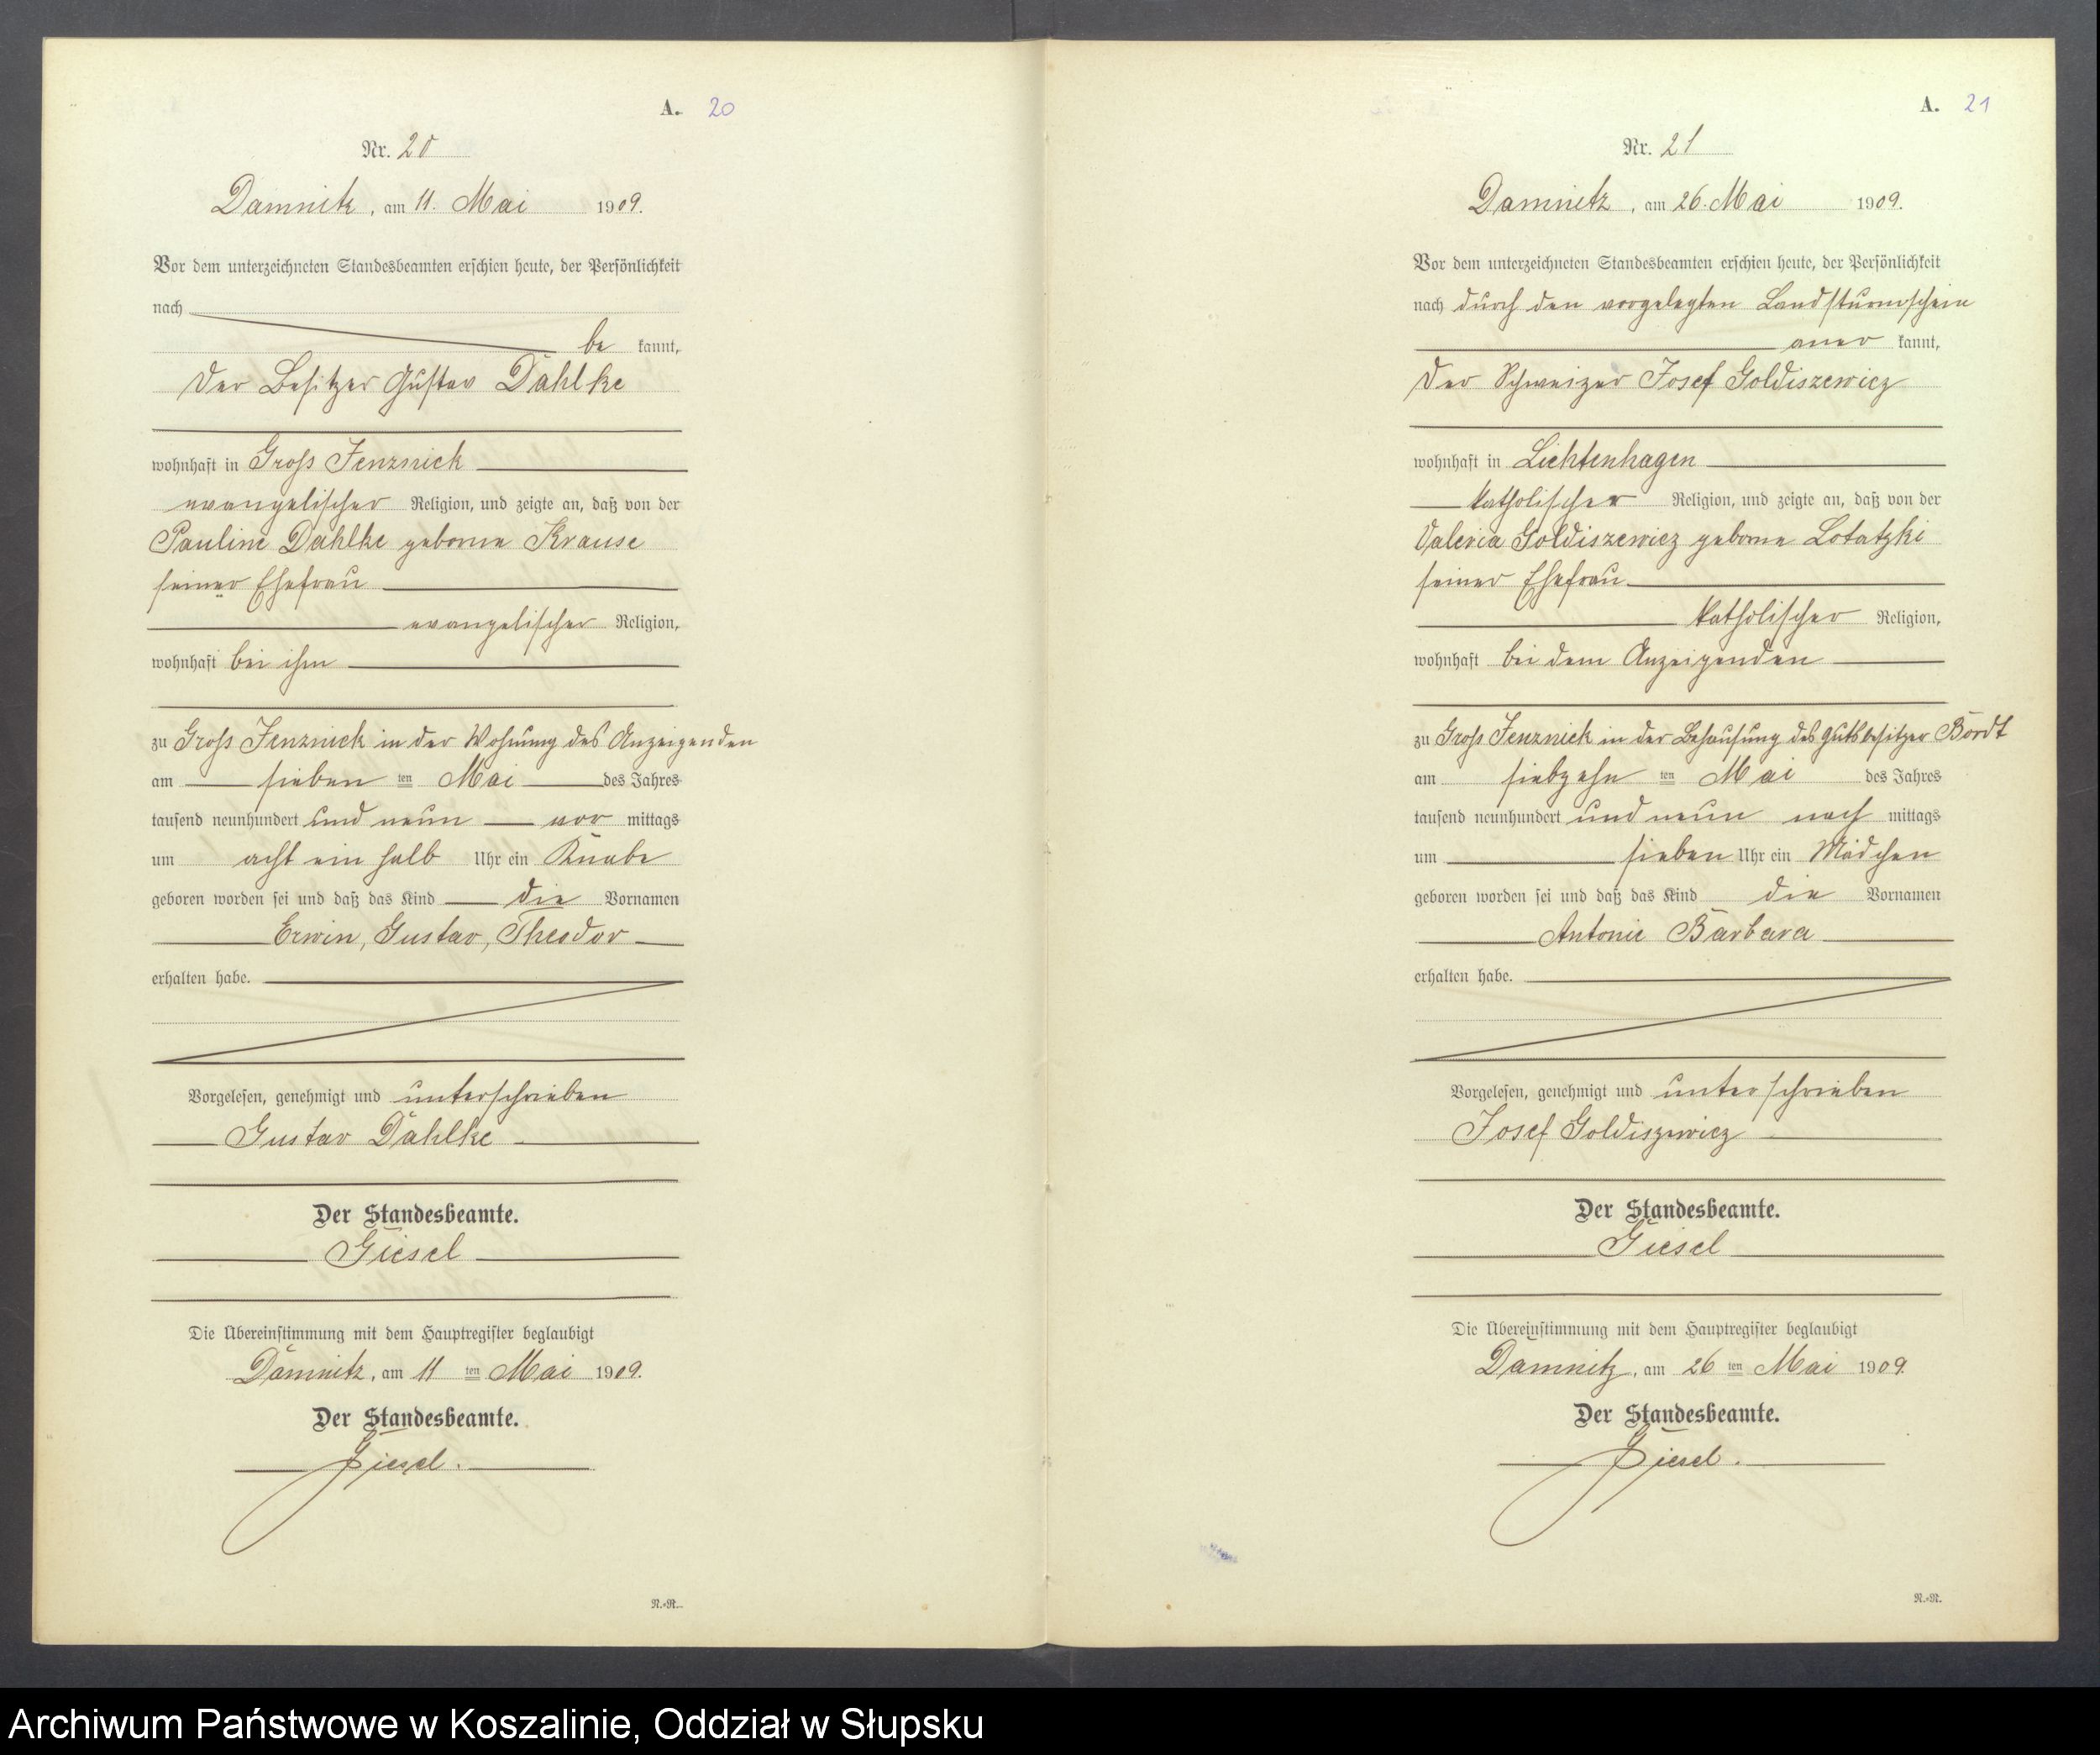 A. 20
Nr. 20
Damnitz, am 11. Mai 1909.
Vor dem unterzeichneten Standesbeamten erschien heute, der Persönlichkeit
nach
be kannt,
der Besitzer Gustav Dahlke
wohnhaft in Groß Jenznick
evangelischer Religion, und zeigte an, daß von der
Pauline Dahlke geborne Krause
seiner Ehefrau
evangelischer Religion,
wohnhaft bei ihm
zu Groß Jenznick in der Wohnung des Anzeigenden
am sieben ten Mai des Jahres
tausend neunhundert und neun vor mittags
um acht ein halb Uhr ein Knabe
geboren worden sei und daß das Kind die Vornamen
Erwin, Gustav, Theodor
erhalten habe.
Vorgelesen, genehmigt und unterschrieben
Gustav Dahlke
Der Standesbeamte.
Giesel
Die Übereinstimmung mit dem Hauptregister beglaubigt
Damnitz, am 11 ten Mai 1909.
Der Standesbeamte.
Giesel.
R.-R.
A. 21
Nr. 21
Damnitz, am 26. Mai 1909.
Vor dem unterzeichneten Standesbeamten erschien heute, der Persönlichkeit
nach durch den vorgelegten Landsturmschein
aner kannt,
der Schweizer Josef Goldiszewicz
wohnhaft in Lichtenhagen
katholischer Religion, und zeigte an, daß von der
Valeria Goldiszewicz geborne Lotatzki
seiner Ehefrau
katholischer Religion,
wohnhaft bei dem Anzeigenden
zu Groß Jenznick in der Behausung des Gutsbesitzer Bordt
am siebzehn ten Mai des Jahres
tausend neunhundert und neun nach mittags
um sieben Uhr ein Mädchen
geboren worden sei und daß das Kind die Vornamen
Antonie Barbara
erhalten habe.
Vorgelesen, genehmigt und unterschrieben
Josef Goldiszewicz
Der Standesbeamte.
Giesel
Die Übereinstimmung mit dem Hauptregister beglaubigt
Damnitz, am 26 ten Mai 1909.
Der Standesbeamte.
Giesel.
R.-R.
Archiwum Państwowe w Koszalinie, Oddział w Słupsku